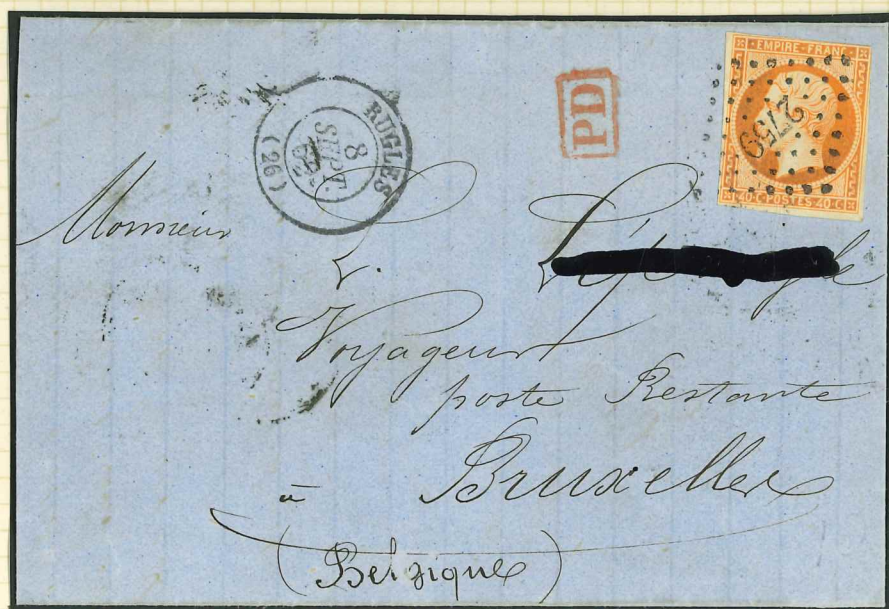 EMPIRE FRANC
2759
40 C POSTES 40 C
PD
RUGLES
8
SEPT.
(26)
Monsieur
L.
Voyageur
poste Restante
à Bruxelles
(Belgique)